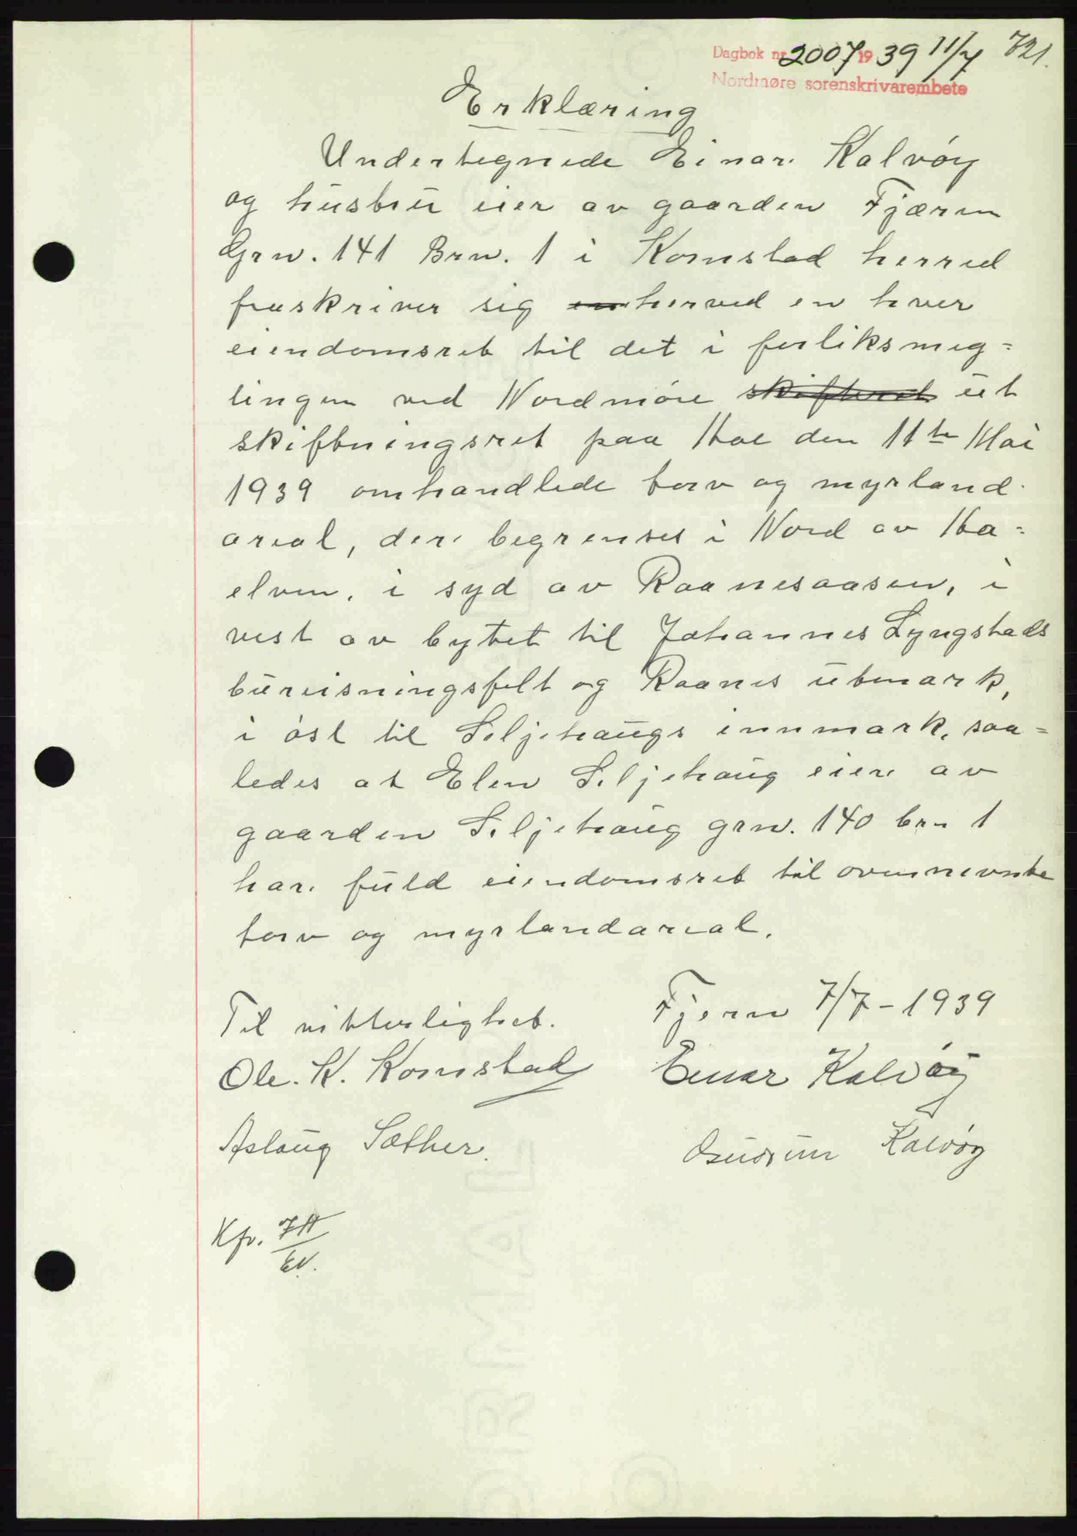 Dagbok nr. 2007 1939 11/7 721.
Nordmøre sorenskrivarembete
Erklæring
Undertegnede Einar Kalvøy
og hustru eier av gaarden Fjæren
Grn. 141 Brn. 1 i Kornstad herred
fraskriver sig en herved en hver
eiendomsret til det i forliksmeg=
lingen ved Nordmøre skifteret ut
skiftningsret paa Hoe den 11te Mai
1939 omhandlede torv og myrland
areal, der begrenses i Nord av Ha=
elven, i syd av Raanesaasen, i
vest av bytet til Johannes Lyngstads
bureisningsfelt og Raanes utmark,
i øst til Siljehaugs innmark, saa=
ledes at Elen Siljehaug eier av
gaarden Siljehaug grn. 140 brn 1
har fuld eiendomsret til ovennevnte
torv og myrlandareal.
Til vitterlighet. Fjern 7/7-1939
Ole. K. Kornstad Einar Kalvøy
Aslaug Sæther. Gudrun Kalvøy
Kfr.